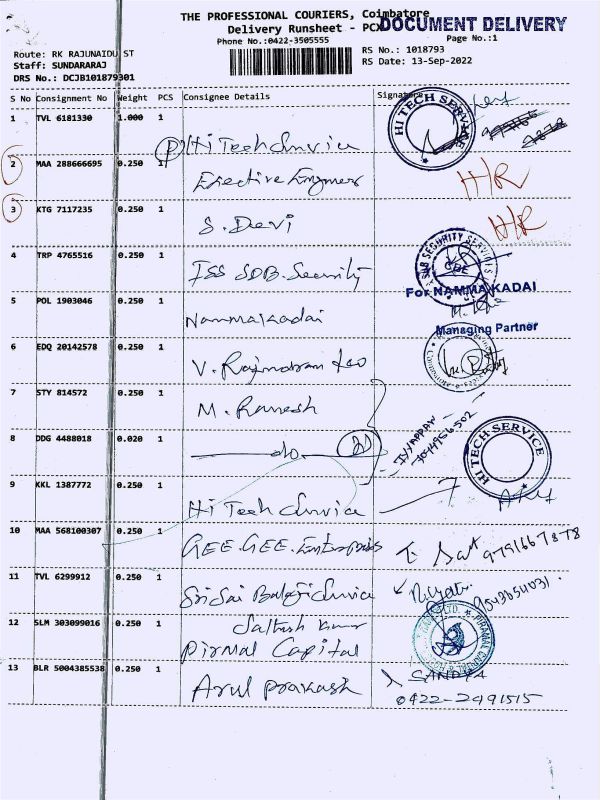 THE PROFESSIONAL COURIERS, Coimbatore
DOCUMENT DELIVERY
Delivery Runsheet - PCX
Phone No.:0422-3505555
Page No.:1
Route: RK RAJUNAIDU ST
RS No.: 1018793
Staff: SUNDARARAJ
RS Date: 13-Sep-2022
DRS No.: DCJB101879301
S No Consignment No Weight PCS Consignee Details Signature
1 TVL 6181330 1.000 1 Hi Tech Service HI TECH SERVICE
2 MAA 288666695 0.250 1 Exective Engineer H/R
3 KTG 7117235 0.250 1 S. Devi H/R
4 TRP 4765516 0.250 1 ISS SDB. Security SECURITY SERVICES CBE
For NAMMA KADAI
5 POL 1903046 0.250 1 Nammakadai
Managing Partner
6 EDQ 20142578 0.250 1 V. Rajendran
7 STY 814572 0.250 1 M. Ramesh
IYYAPPAN
8 DDG 4488018 0.020 1 do
9 KKL 1387772 0.250 1 Hi Tech Service HI TECH SERVICE
10 MAA 568100307 0.250 1 GEE.GEE.Enterprises 9791667878
11 TVL 6299912 0.250 1 Sri Sai Balaji Service
12 SLM 303099016 0.250 1 Sathish Kumar
Pirmal Capital PIRAMAL CAPITAL
13 BLR 5004385538 0.250 1 Arul Prakash SANDYA
0422-2491515